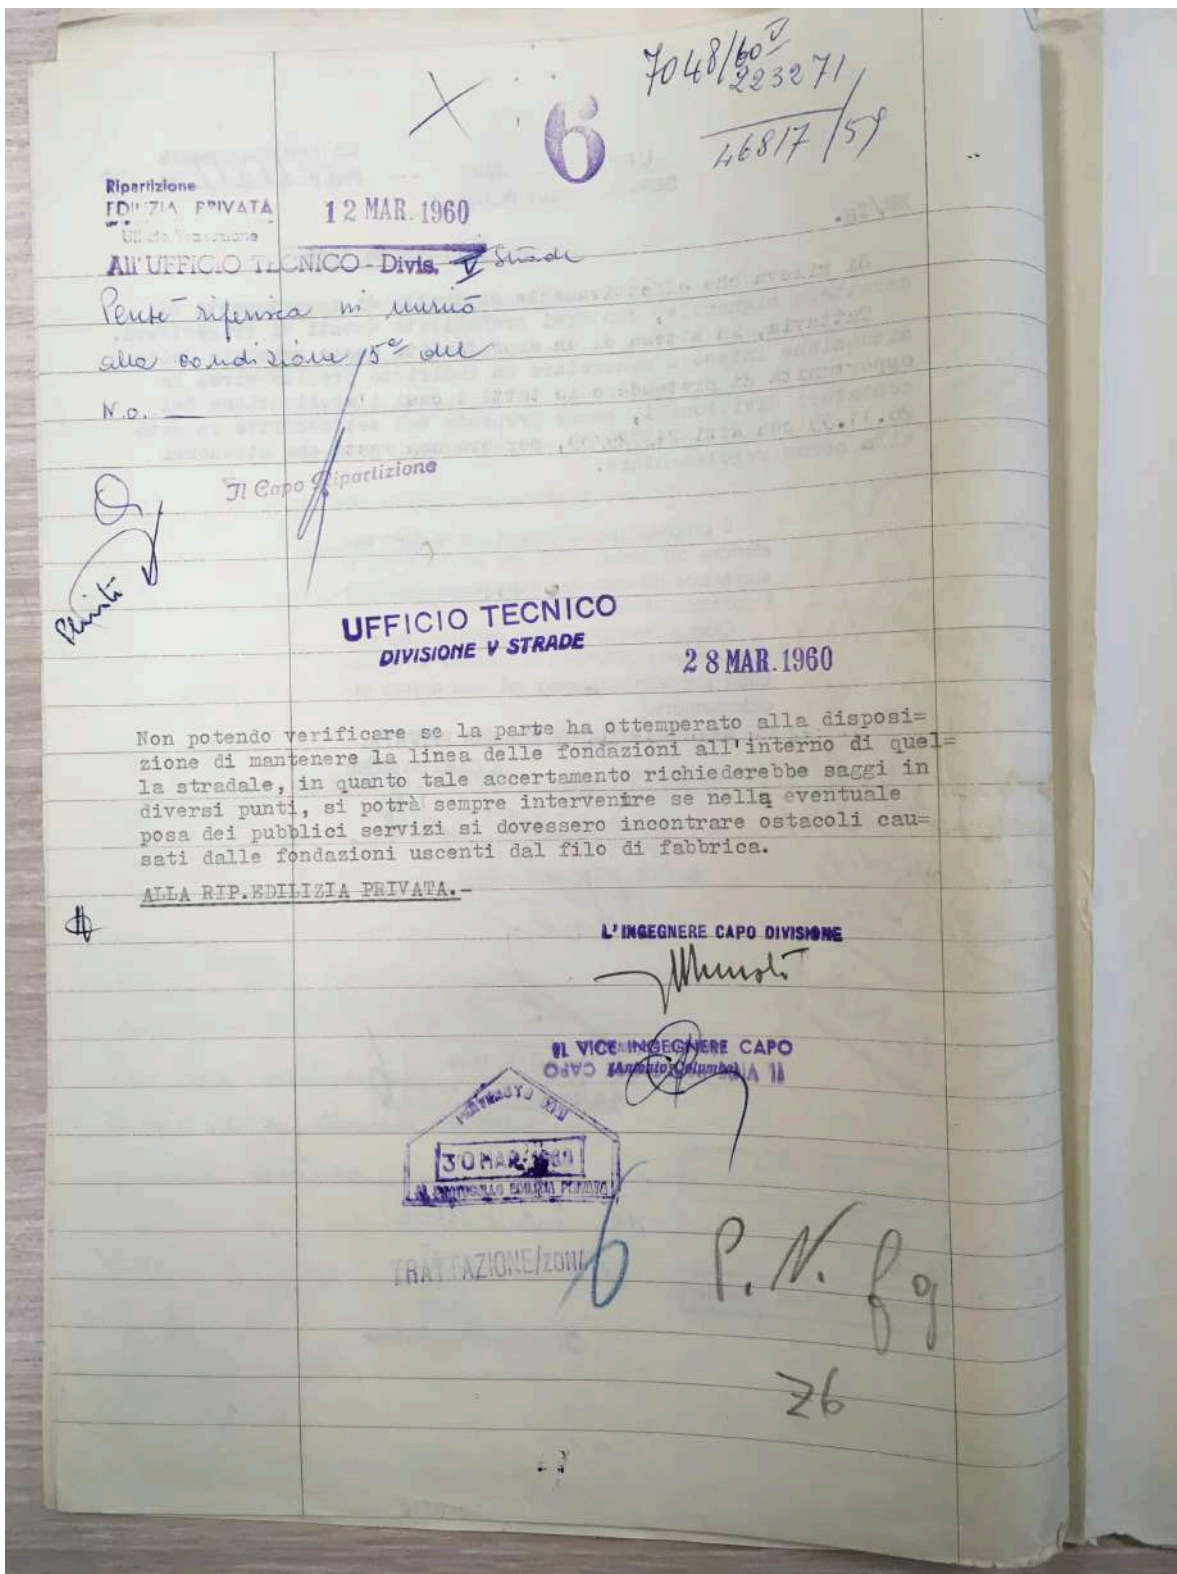 7048/60 V
223271
46817/59
6
Ripartizione
EDILIZIA PRIVATA
12 MAR. 1960
All'UFFICIO TECNICO - Divis. V Strade
riferisca in merito
alla condizione 5ª del
N.O. —
Il Capo Ripartizione
UFFICIO TECNICO
DIVISIONE V STRADE
28 MAR. 1960
Non potendo verificare se la parte ha ottemperato alla disposi=
zione di mantenere la linea delle fondazioni all'interno di quel=
la stradale, in quanto tale accertamento richiederebbe saggi in
diversi punti, si potrà sempre intervenire se nella eventuale
posa dei pubblici servizi si dovessero incontrare ostacoli cau=
sati dalle fondazioni uscenti dal filo di fabbrica.
ALLA RIP.EDILIZIA PRIVATA.-
L'INGEGNERE CAPO DIVISIONE
IL VICE INGEGNERE CAPO
(Antonio Columbo)
30 MAR. 1960
AL PROTOCOLLO EDILIZIA PRIVATA
TRATTAZIONE/ZONA 6
P. N. fg
Z6